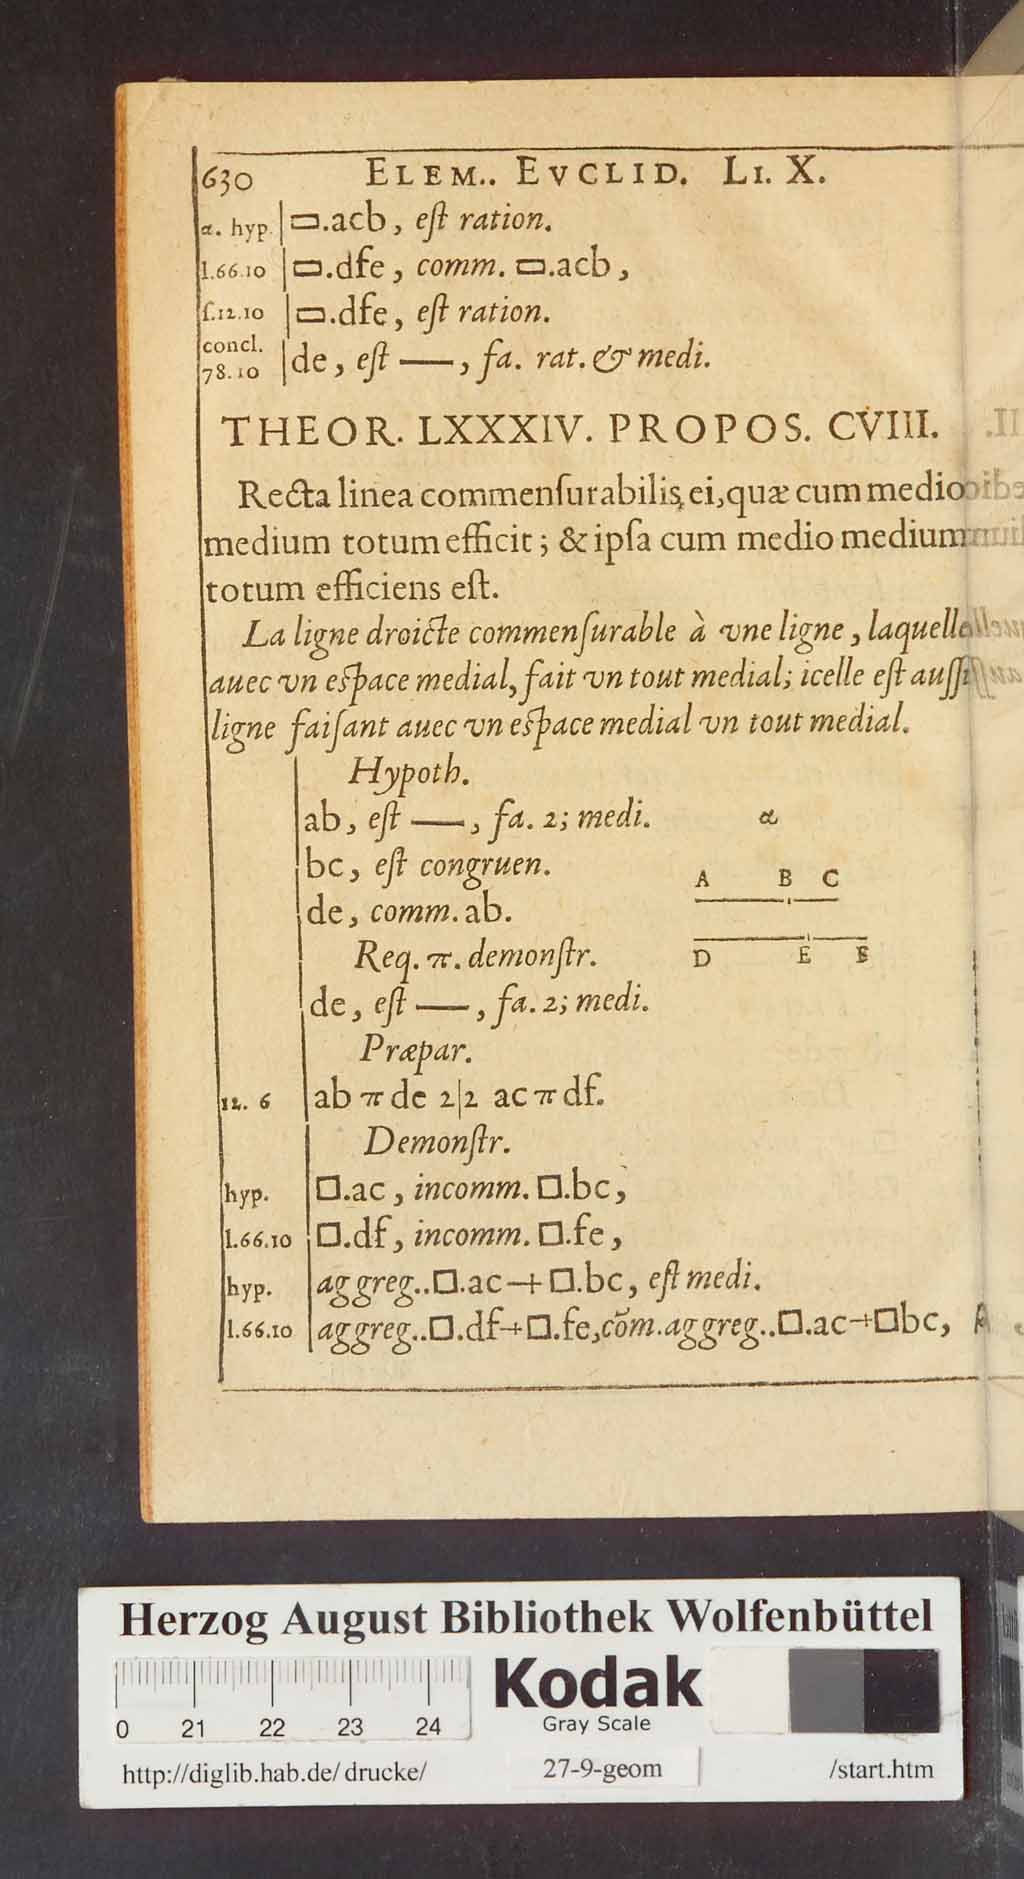 630 ELEM.. EVCLID. LI. X.
α. hyp. | ▭.acb, eſt ration.
1.66.10 | ▭.dfe, comm. ▭.acb,
ſ.12.10 | ▭.dfe, eſt ration.
concl. 78.10 | de, eſt ——, fa. rat. & medi.
THEOR. LXXXIV. PROPOS. CVIII.
Recta linea commenſurabilis, ei, quæ cum medio
medium totum efficit; & ipſa cum medio medium
totum efficiens eſt.
La ligne droicte commenſurable à vne ligne, laquelle
auec vn eſpace medial, fait vn tout medial; icelle eſt auſſi
ligne faiſant auec vn eſpace medial vn tout medial.
Hypoth.
ab, eſt ——, fa. 2; medi. α
bc, eſt congruen.
A B C
de, comm. ab.
Req. π. demonſtr.
D E F
de, eſt ——, fa. 2; medi.
Præpar.
12. 6 | ab π de 2|2 ac π df.
Demonſtr.
hyp. | □.ac, incomm. □.bc,
1.66.10 | □.df, incomm. □.fe,
hyp. | aggreg..□.ac + □.bc, eſt medi.
1.66.10 | aggreg..□.df+□.fe,com̃.aggreg..□.ac+□bc,
Herzog August Bibliothek Wolfenbüttel
0 21 22 23 24
Kodak
Gray Scale
http://diglib.hab.de/drucke/ 27-9-geom /start.htm